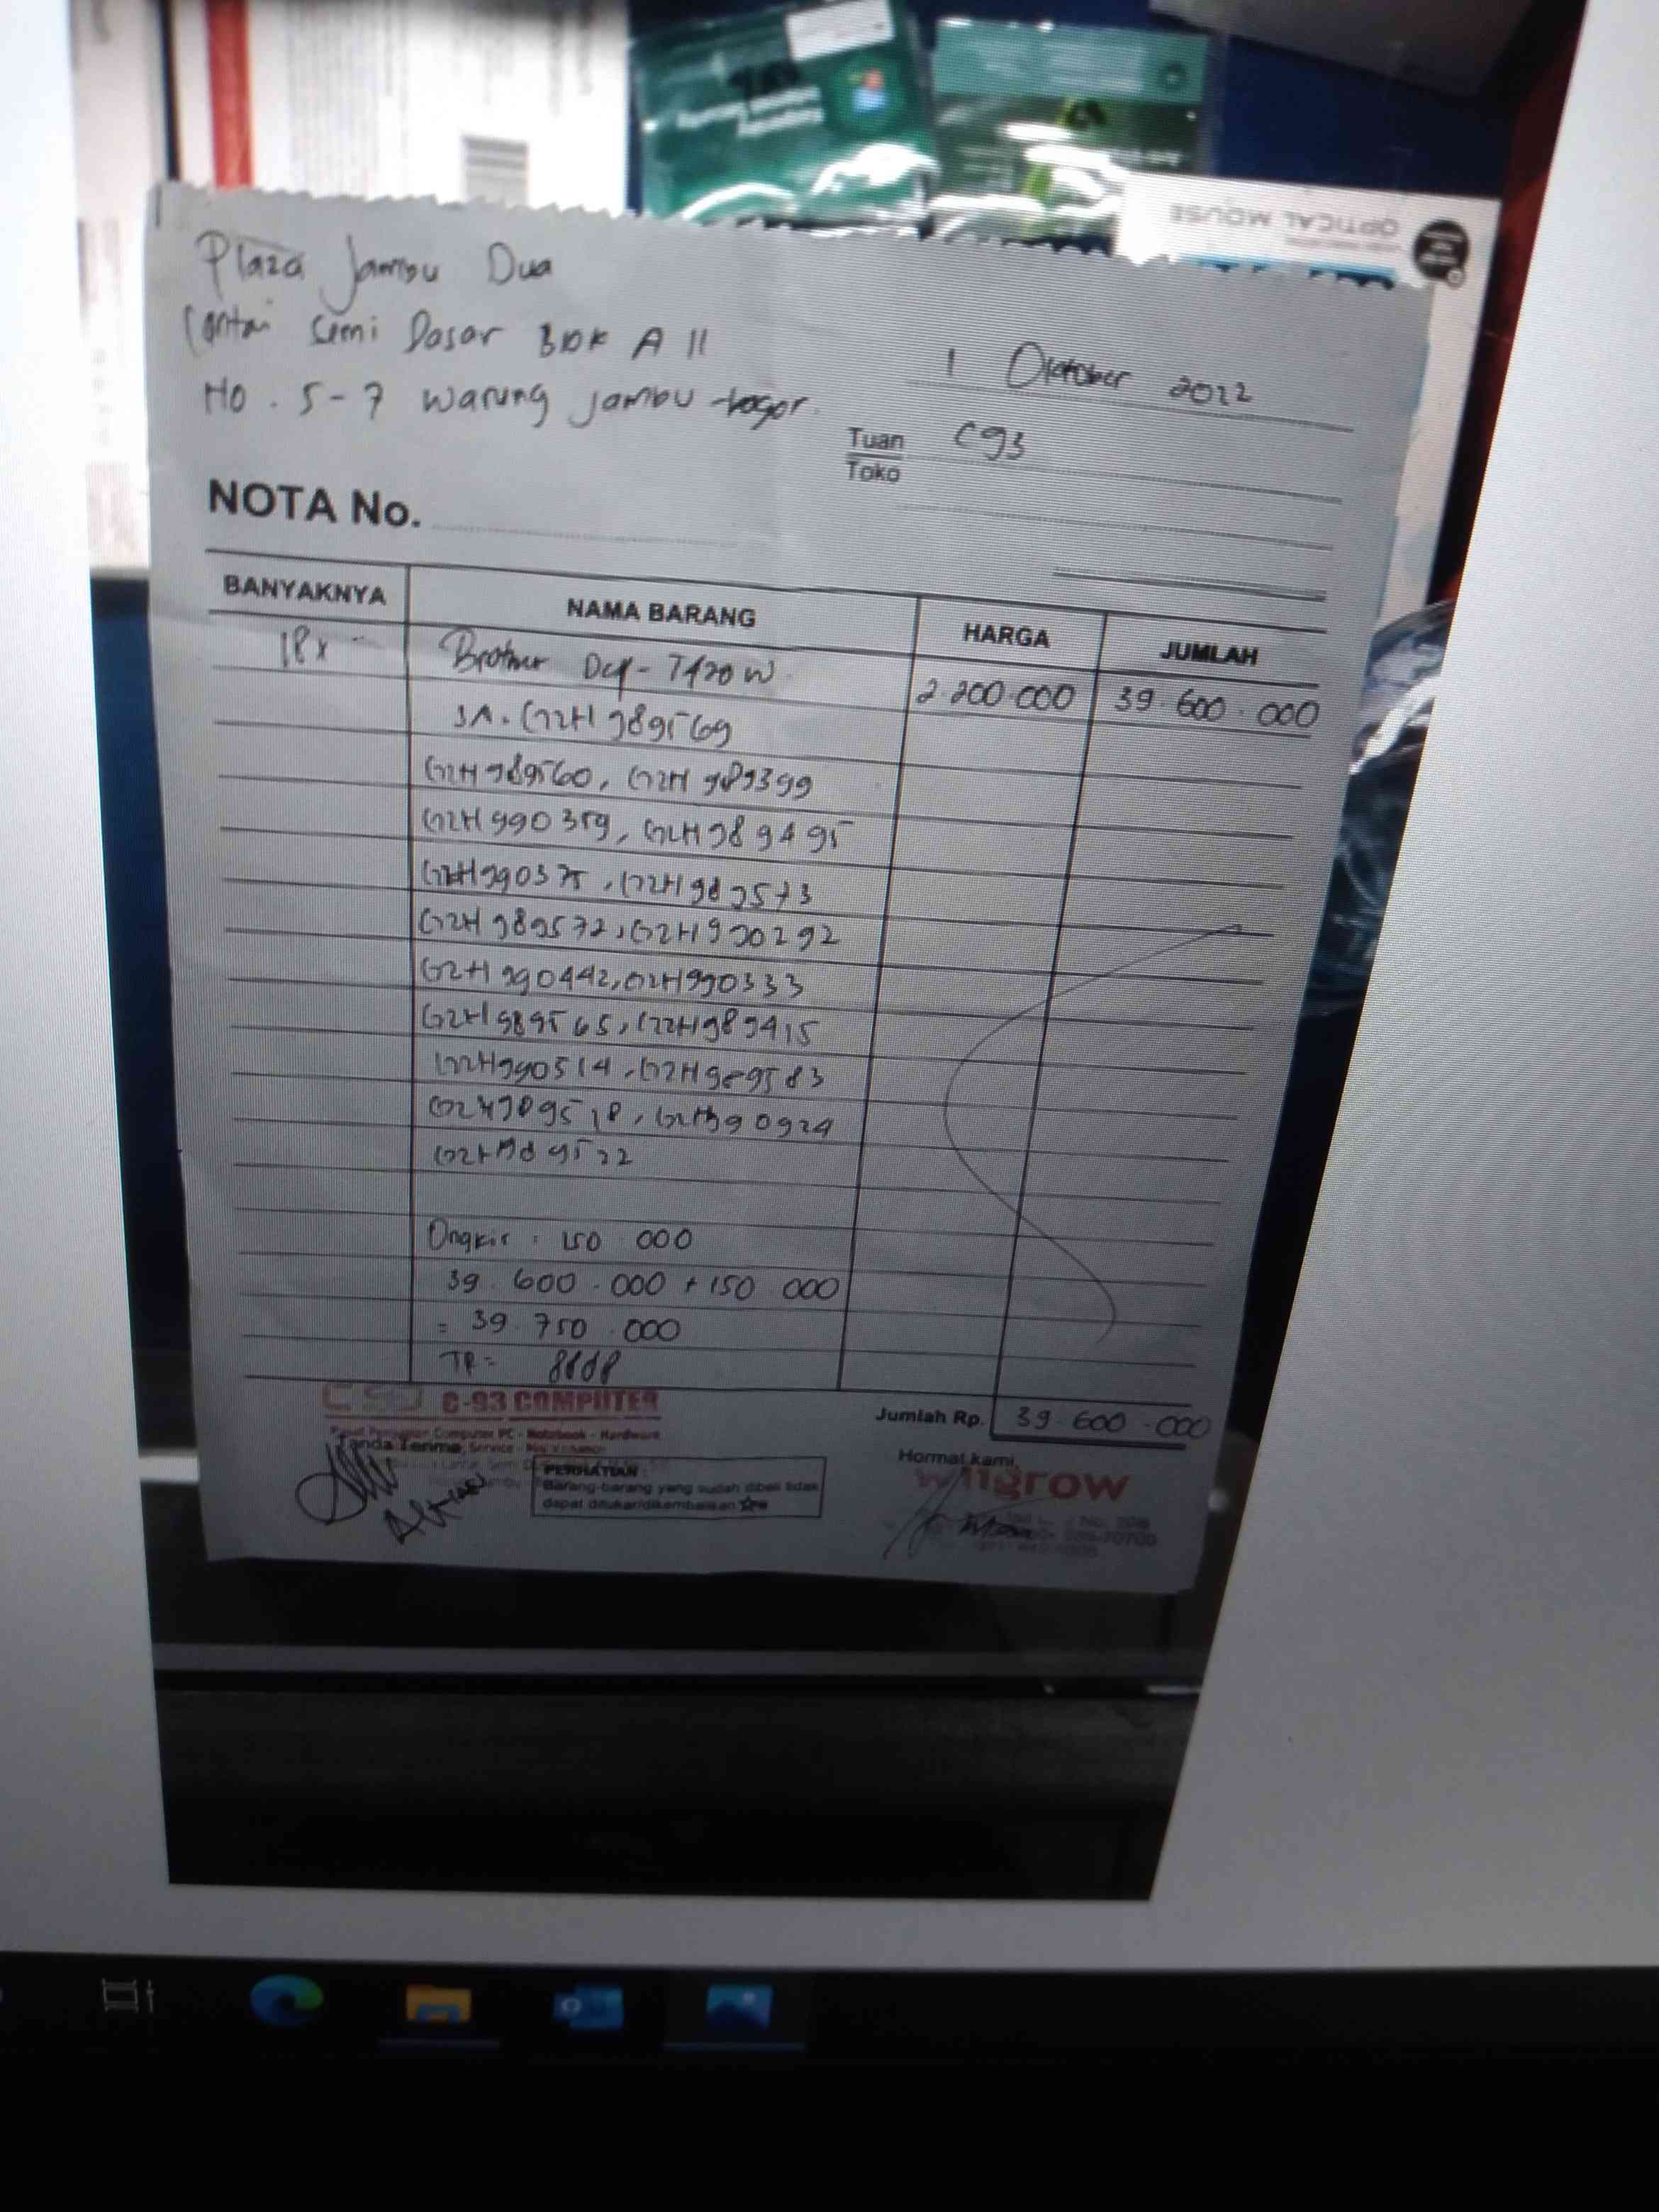 OPTICAL MOUSE
Plaza Jambu Dua
Lantai Semi Dasar Blok A 11
No. 5-7 Warung Jambu-bogor.
1 Oktober 2022
Tuan C93
Toko
NOTA No.
BANYAKNYA NAMA BARANG HARGA JUMLAH
18x Brother Dcp-T420W 2.200.000 39.600.000
G2H989569
G2H989560, G2H989399
G2H990359, G2H989495
G2H990375, G2H989573
G2H989572, G2H990292
G2H990442, G2H990333
G2H989565, G2H989415
G2H990514, G2H989583
G2H989518, G2H990924
G2H989522
Ongkir : 150 000
39.600.000 + 150 000
= 39.750.000
C-93 COMPUTER
Jumlah Rp. 39.600.000
Computer PC - Notebook - Hardware
Tanda Terima
Service
Hormat kami,
PERHATIAN :
Barang-barang yang sudah dibeli tidak
dapat ditukar/dikembalikan